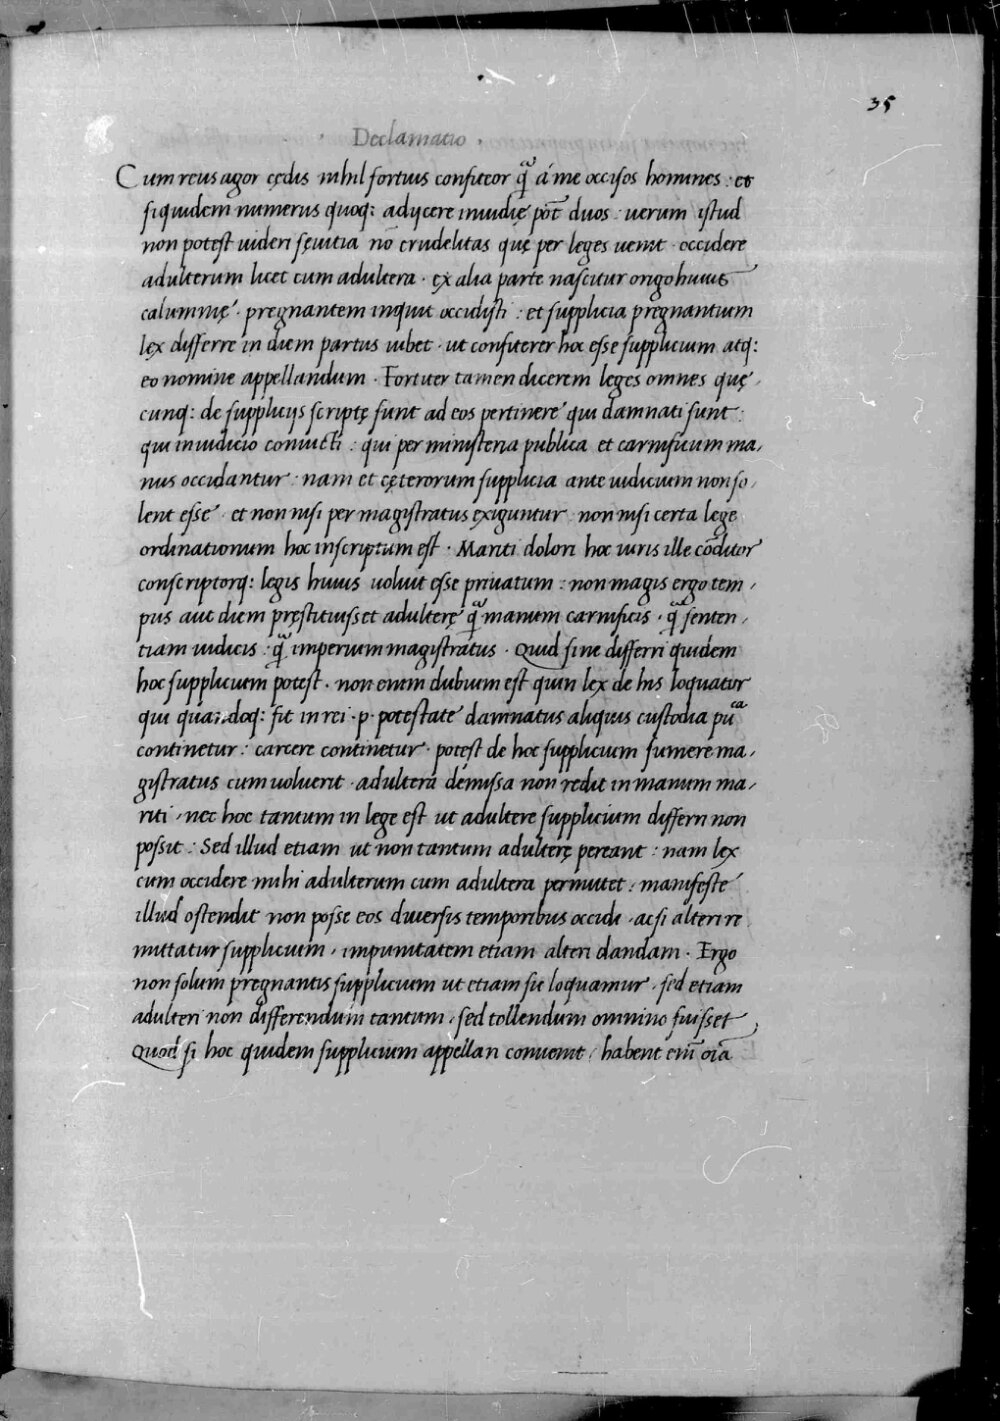 35
Declamatio .
Cum reus agor cędis nihil fortius confiteor ꝗᷓ á me occisos homines : et
siquidem numerus quoq: adijcere inuidię põt duos : uerum istud
non potest uideri sęuitia nõ crudelitas quę per leges uenit · occidere
adulterum licet cum adultera · ex alia parte nascitur origo huius
calumnię · pregnantem inquit occidisti : et supplicia pregnantium
lex differre in diem partus iubet · ut confiterer hoc esse supplicium atq:
eo nomine appellandum · Fortiter tamen dicerem leges omnes quę,
cunq: de supplicijs scriptę sunt ad eos pertinere qui damnati sunt :
qui in iudicio conuicti : qui per ministeria publica et carnificum ma,
nus occidantur : nam et cęterorum supplicia ante iudicium non so,
lent esse · et non nisi per magistratus exiguntur non nisi certa lege
ordinationum hoc inscriptum est · Mariti dolori hoc iuris ille cõditor
conscriptorq: legis huius uoluit esse priuatum : non magis ergo tem,
pus aut diem pręstituisset adulterę ꝗᷓ manum carnificis · ꝗᷓ senten,
tiam iudicis : ꝗᷓ imperium magistratus · Quid sine differri quidem
hoc supplicium potest · non enim dubium est quin lex de his loquatur
qui quandoq: sit in rei · p · potestate damnatus aliquis custodia puᷓ
continetur : carcere continetur · potest de hoc supplicium sumere ma,
gistratus cum uoluerit · adultera demissa non redit in manum ma,
riti , nec hoc tantum in lege est ut adultere supplicium differri non
possit : Sed illud etiam ut non tantum adulterę pereant : nam lex
cum occidere mihi adulterum cum adultera permittet : manifeste
illud ostendit non posse eos diuersis temporibus occidi , ac si alteri re
mittatur supplicium , impunitatem etiam alteri dandam · Ergo
non solum pregnantis supplicium ut etiam sic loquamur , sed etiam
adulteri non differendum tantum , sed tollendum omnino fuisset ,
Quod si hoc quidem supplicium appellari conuenit , habent eni᷈ oi᷈a